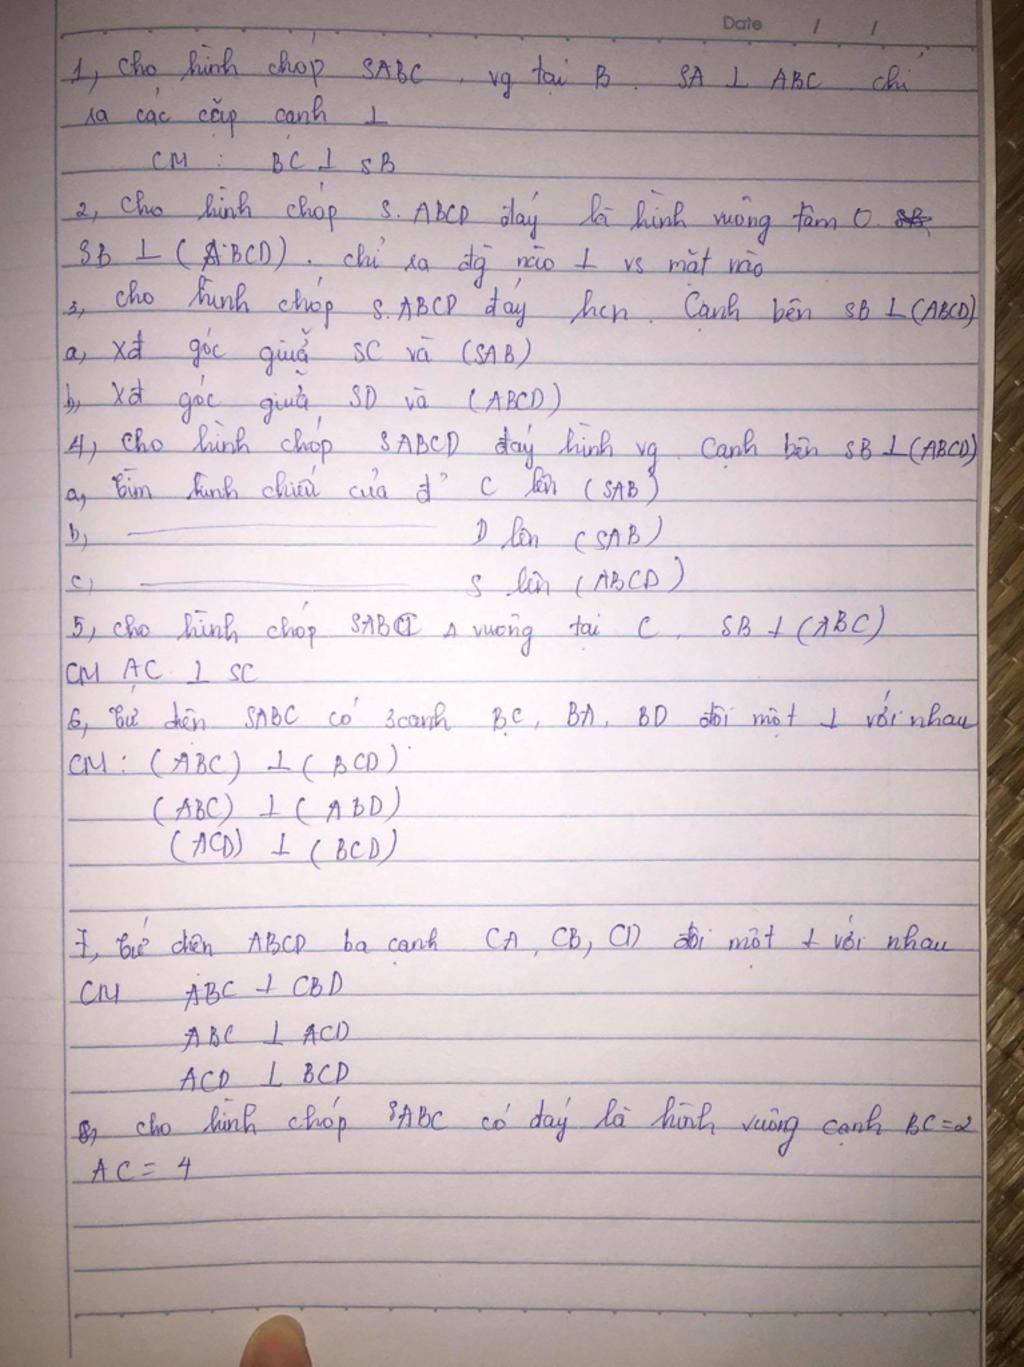 Date / /
1, Cho hình chóp SABC, vg tại B. SA ⊥ ABC. chỉ
ra các cặp cạnh ⊥
CM : BC ⊥ SB
2, Cho hình chóp S.ABCD đáy là hình vuông tâm O.
SB ⊥ (ABCD). chỉ ra đg nào ⊥ vs mặt nào
3, cho hình chóp S.ABCD đáy hcn. Cạnh bên SB ⊥ (ABCD)
a, Xđ góc giữa SC và (SAB)
b, Xđ góc giữa SD và (ABCD)
4, Cho hình chóp SABCD đáy hình vg. Cạnh bên SB ⊥ (ABCD)
a, tìm hình chiếu của đ' C lên (SAB)
b, ———— D lên (SAB)
c, ———— S lên (ABCD)
5, cho hình chóp SABC Δ vuông tại C. SB ⊥ (ABC)
CM AC ⊥ SC
6, tứ diện SABC có 3 cạnh BC, BA, BD đôi một ⊥ với nhau
CM : (ABC) ⊥ (BCD)
(ABC) ⊥ (ABD)
(ACD) ⊥ (BCD)
7, tứ diện ABCD ba cạnh CA, CB, CD đôi một ⊥ với nhau
CM ABC ⊥ CBD
ABC ⊥ ACD
ACD ⊥ BCD
8, cho hình chóp SABC có đáy là hình vuông cạnh BC=2
AC = 4